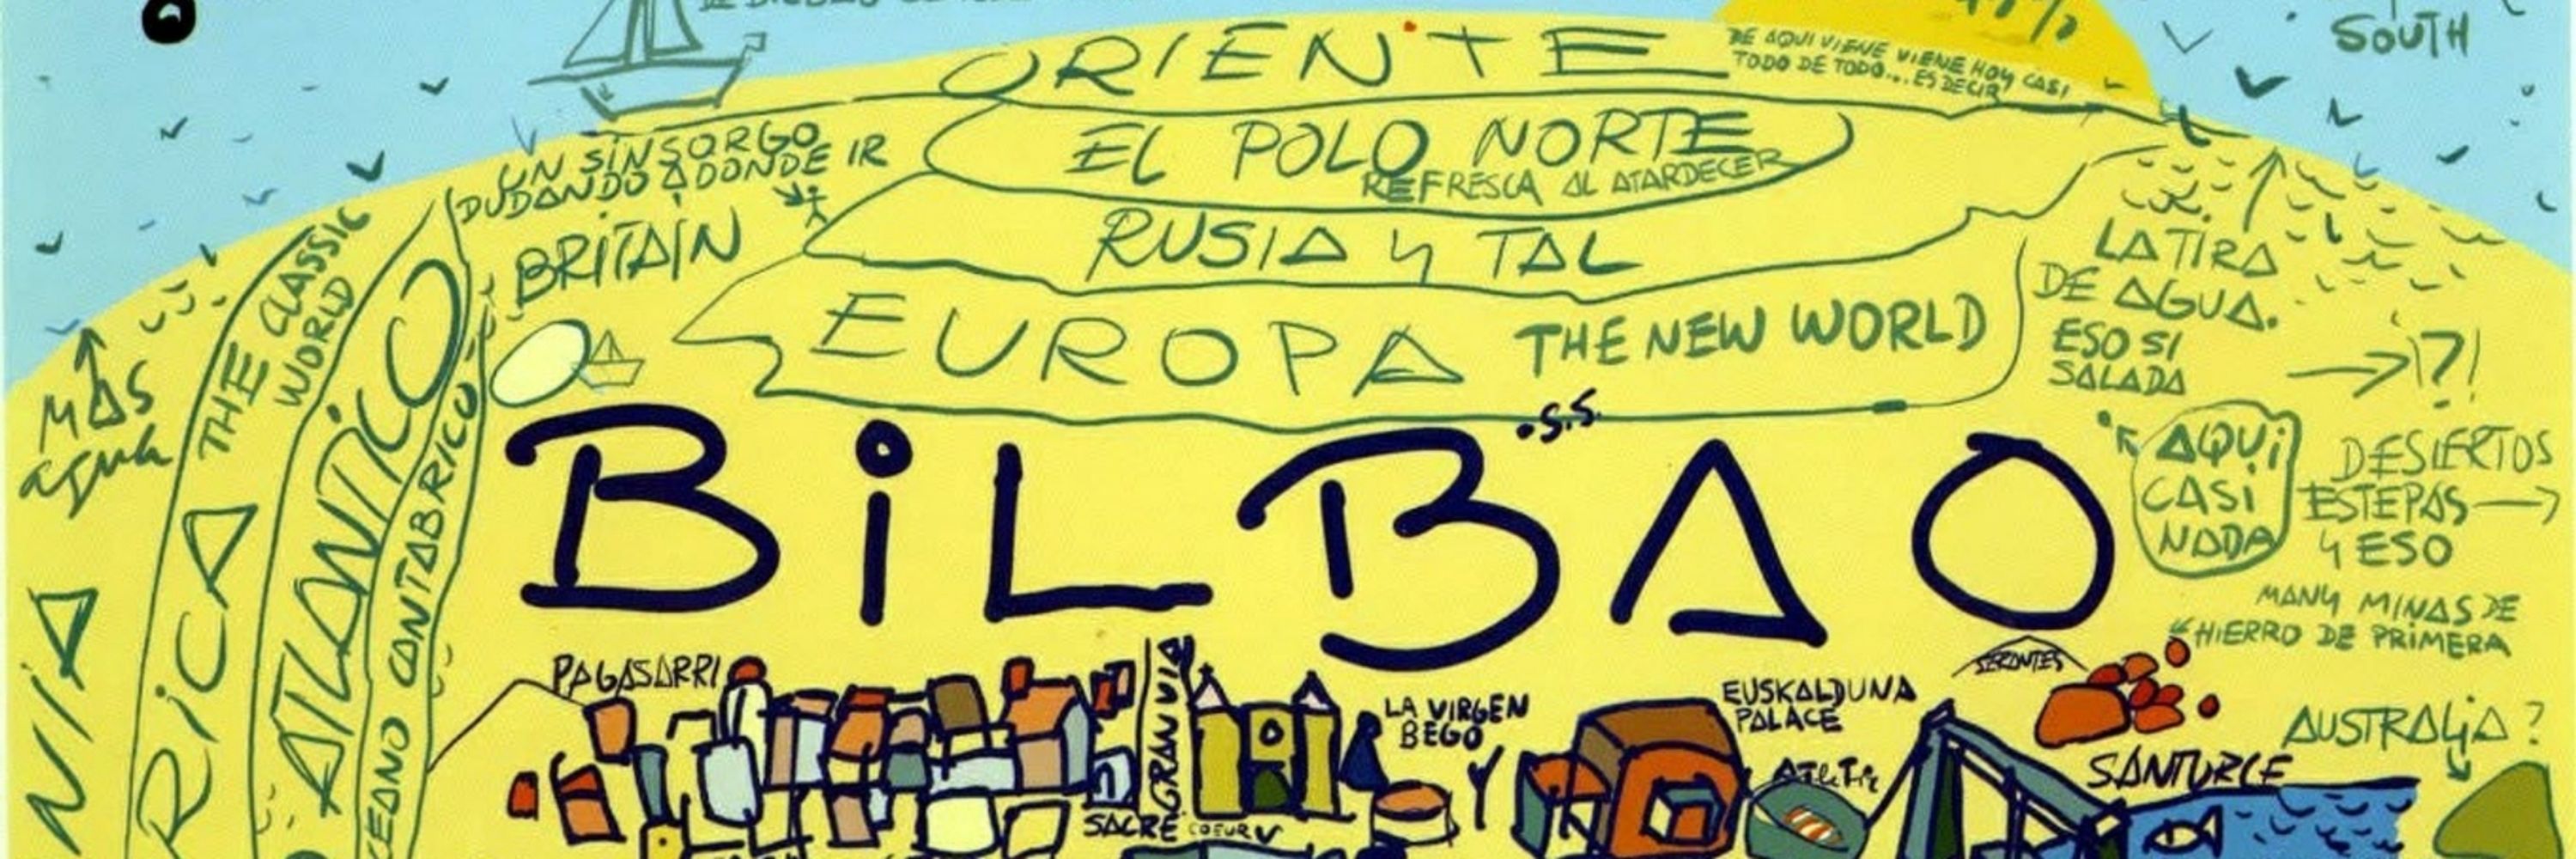 SOUTH
ORIENTE
DE AQUI VIENE VIENE HOY CASI
TODO DE TODO... ES DECIR
EL POLO NORTE
REFRESCA AL ATARDECER
UN SINSORGO
DUDANDO A DONDE IR
BRITAIN
RUSIA Y TAL
EUROPA THE NEW WORLD
THE CLASSIC
WORLD
MAS
agua
RICA
ATLANTICO
CEANO CANTABRICO
NIA
LA TIRA
DE AGUA.
ESO SI
SALADA
?!
.S.S.
BiLBAO
AQUI
CASI
NADA
DESIERTOS
ESTEPAS
Y ESO
MANY MINAS DE
HIERRO DE PRIMERA
PAGASARRI
GRAN VIA
SACRE COEUR
LA VIRGEN
BEGO
EUSKALDUNA
PALACE
ATLETIC
SERANTES
SANTURCE
AUSTRALIA?